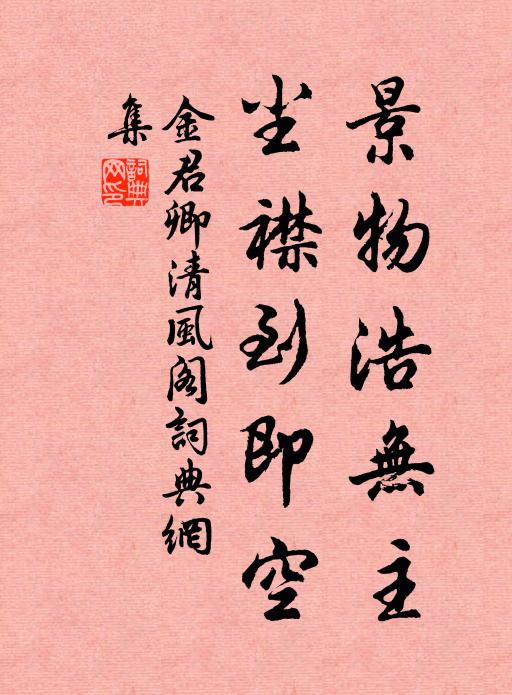 景物浩無主
尘襟到即空
金君卿清風阁詞典網
集
詞典
网印